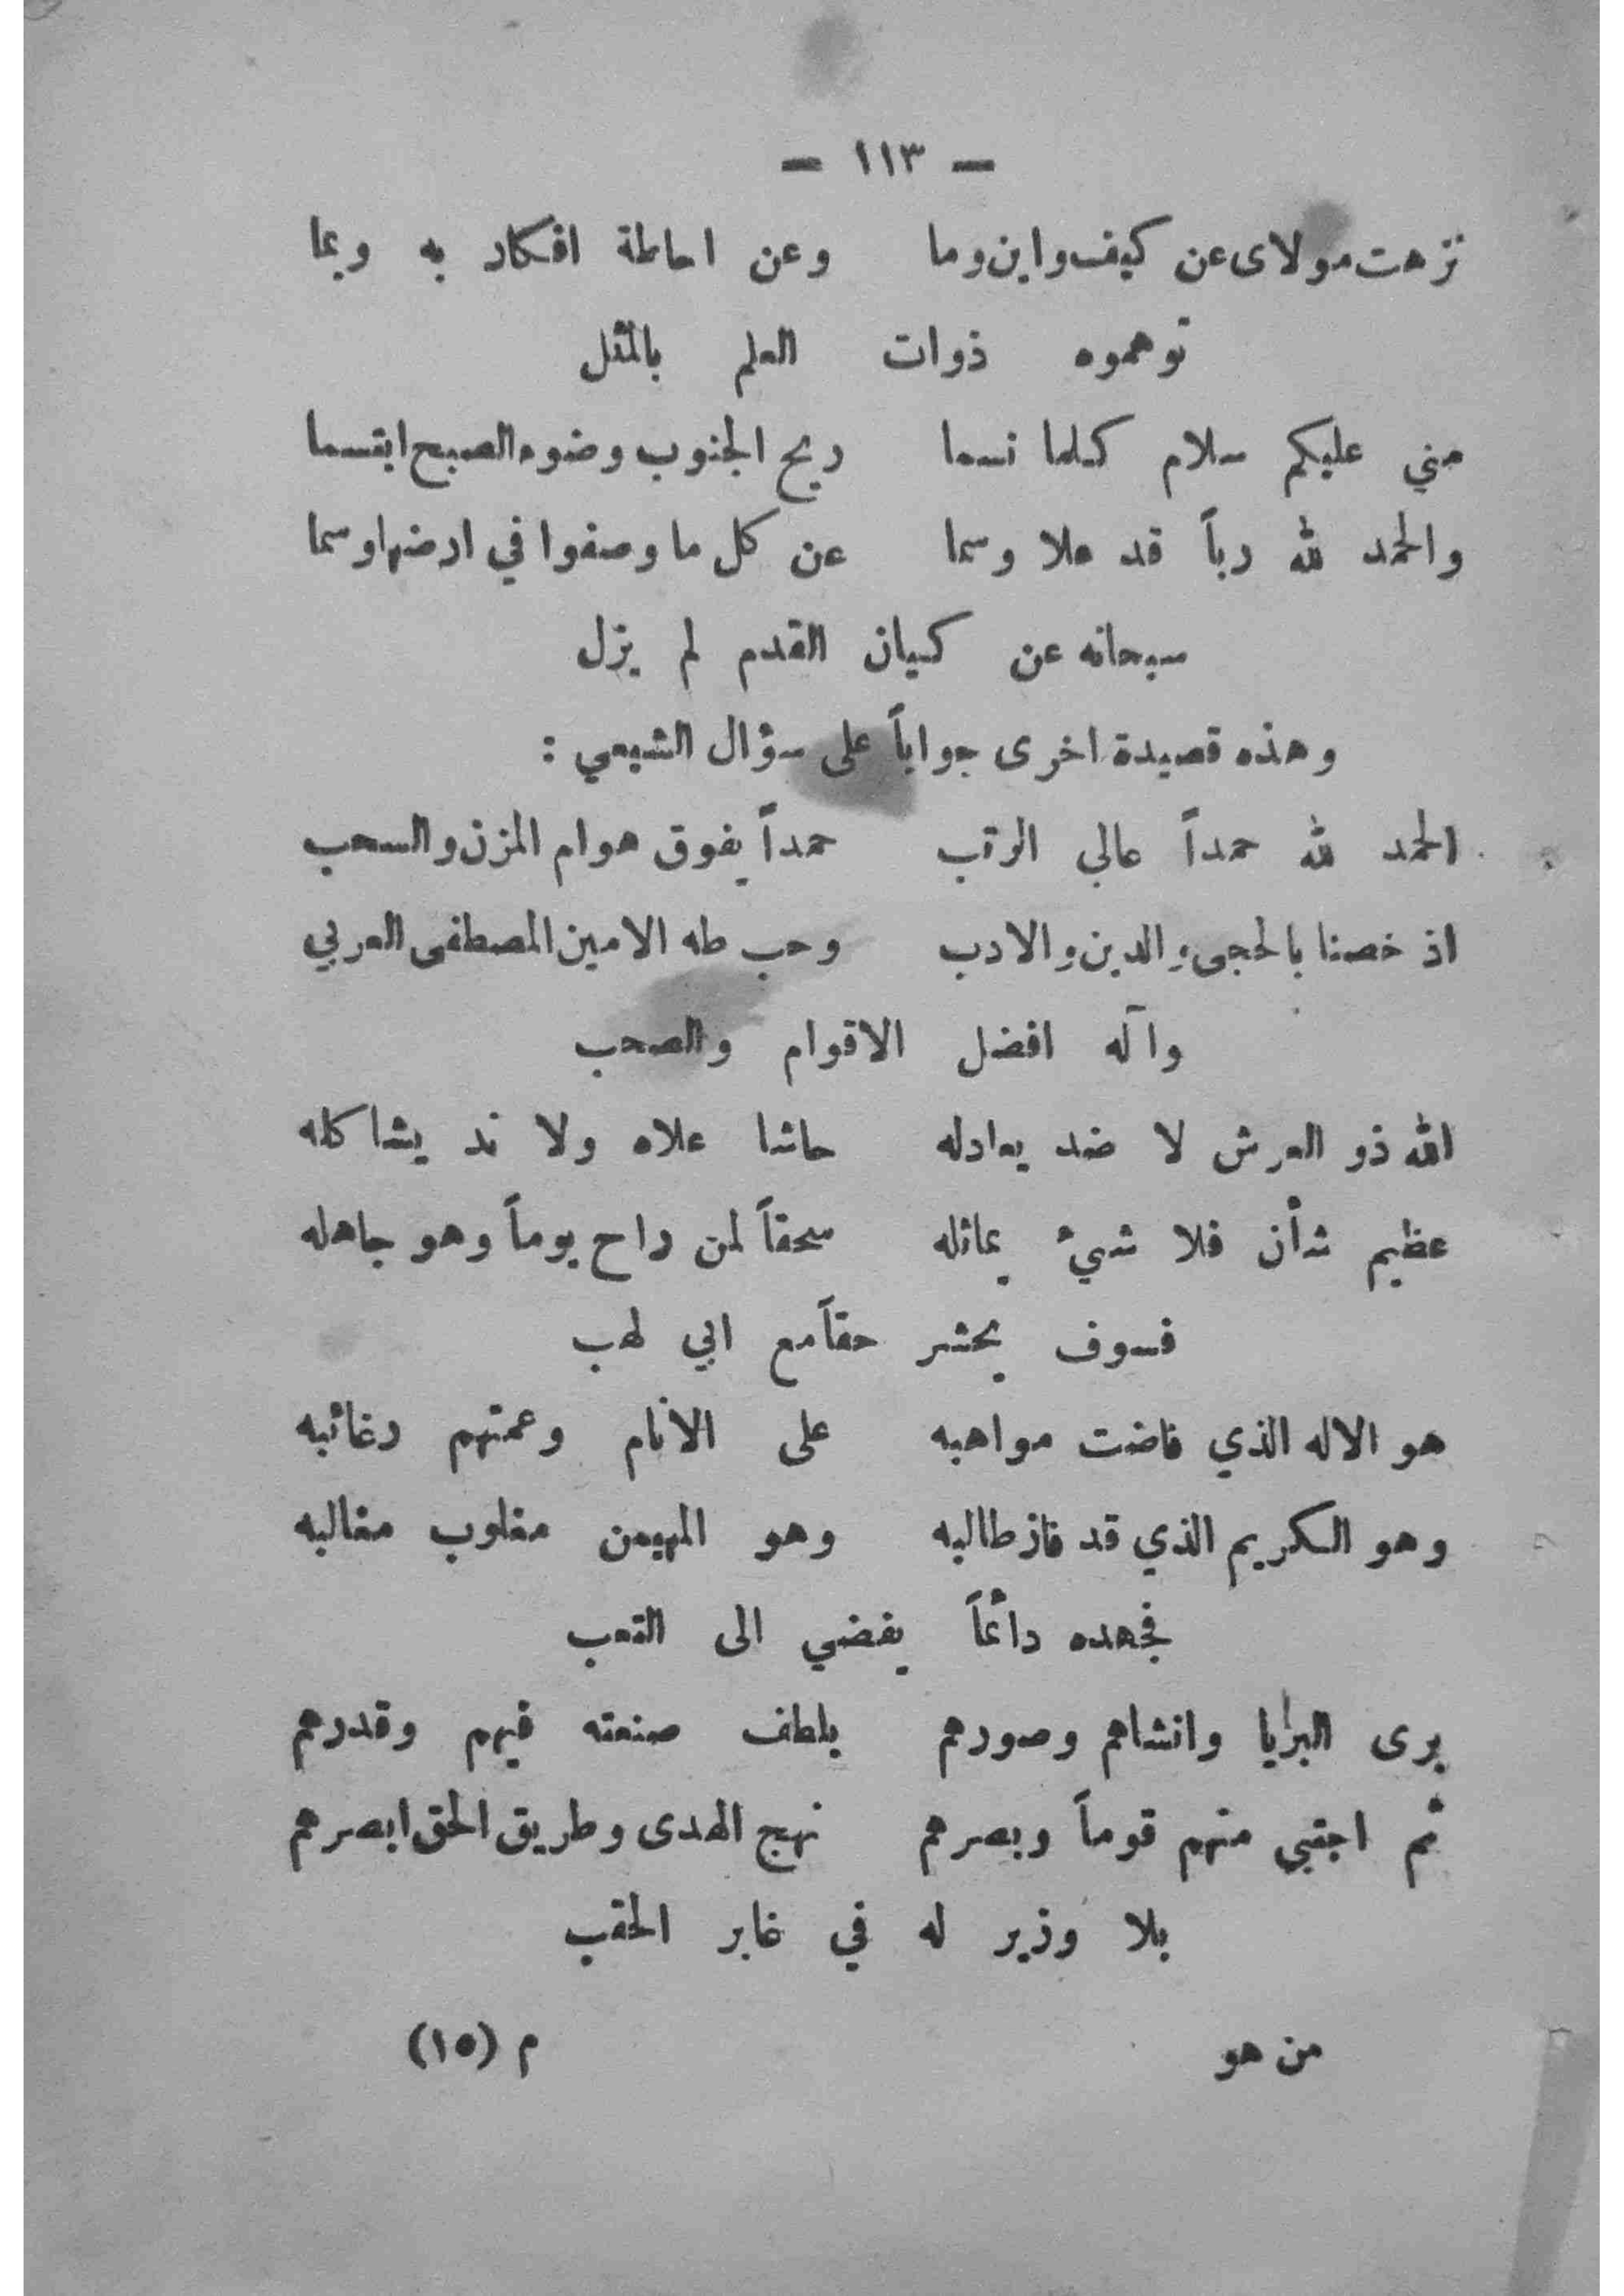 — ١١٣ —
نزهت مولاى عن كيف واين وما وعن احاطة افكار به وبما
توهموه ذوات العلم بالمثل
مني عليكم سلام كلما نسما ريح الجنوب وضوء الصبح ابتسما
والحمد لله رباً قد علا وسما عن كل ما وصفوا في ارضها وسما
سبحانه عن كيان القدم لم يزل
وهذه قصيدة اخرى جواباً على سؤال الشيعي :
الحمد لله حمداً عالي الرتب حمداً يفوق هوام المزن والسحب
اذ خصنا بالحجى والدين والادب وحب طه الامين المصطفى العربي
وآله افضل الاقوام والصحب
الله ذو العرش لا ضد يعادله حاشا علاه ولا ند يشاكله
عظيم شأن فلا شيء يماثله سحقاً لمن راح يوماً وهو جاهله
فسوف يحشر حقاً مع ابي لهب
هو الاله الذي فاضت مواهبه على الانام وعمتهم رغائبه
وهو الكريم الذي قد فاز طالبه وهو المهيمن مغلوب مغالبه
فجهده دائماً يفضي الى التعب
برى البرايا وانشاهم وصورهم بلطف صنعته فيهم وقدرهم
ثم اجتبي منهم قوماً وبصرهم نهج الهدى وطريق الحق ابصرهم
بلا وزير له في غابر الحقب
من هو م (١٥)